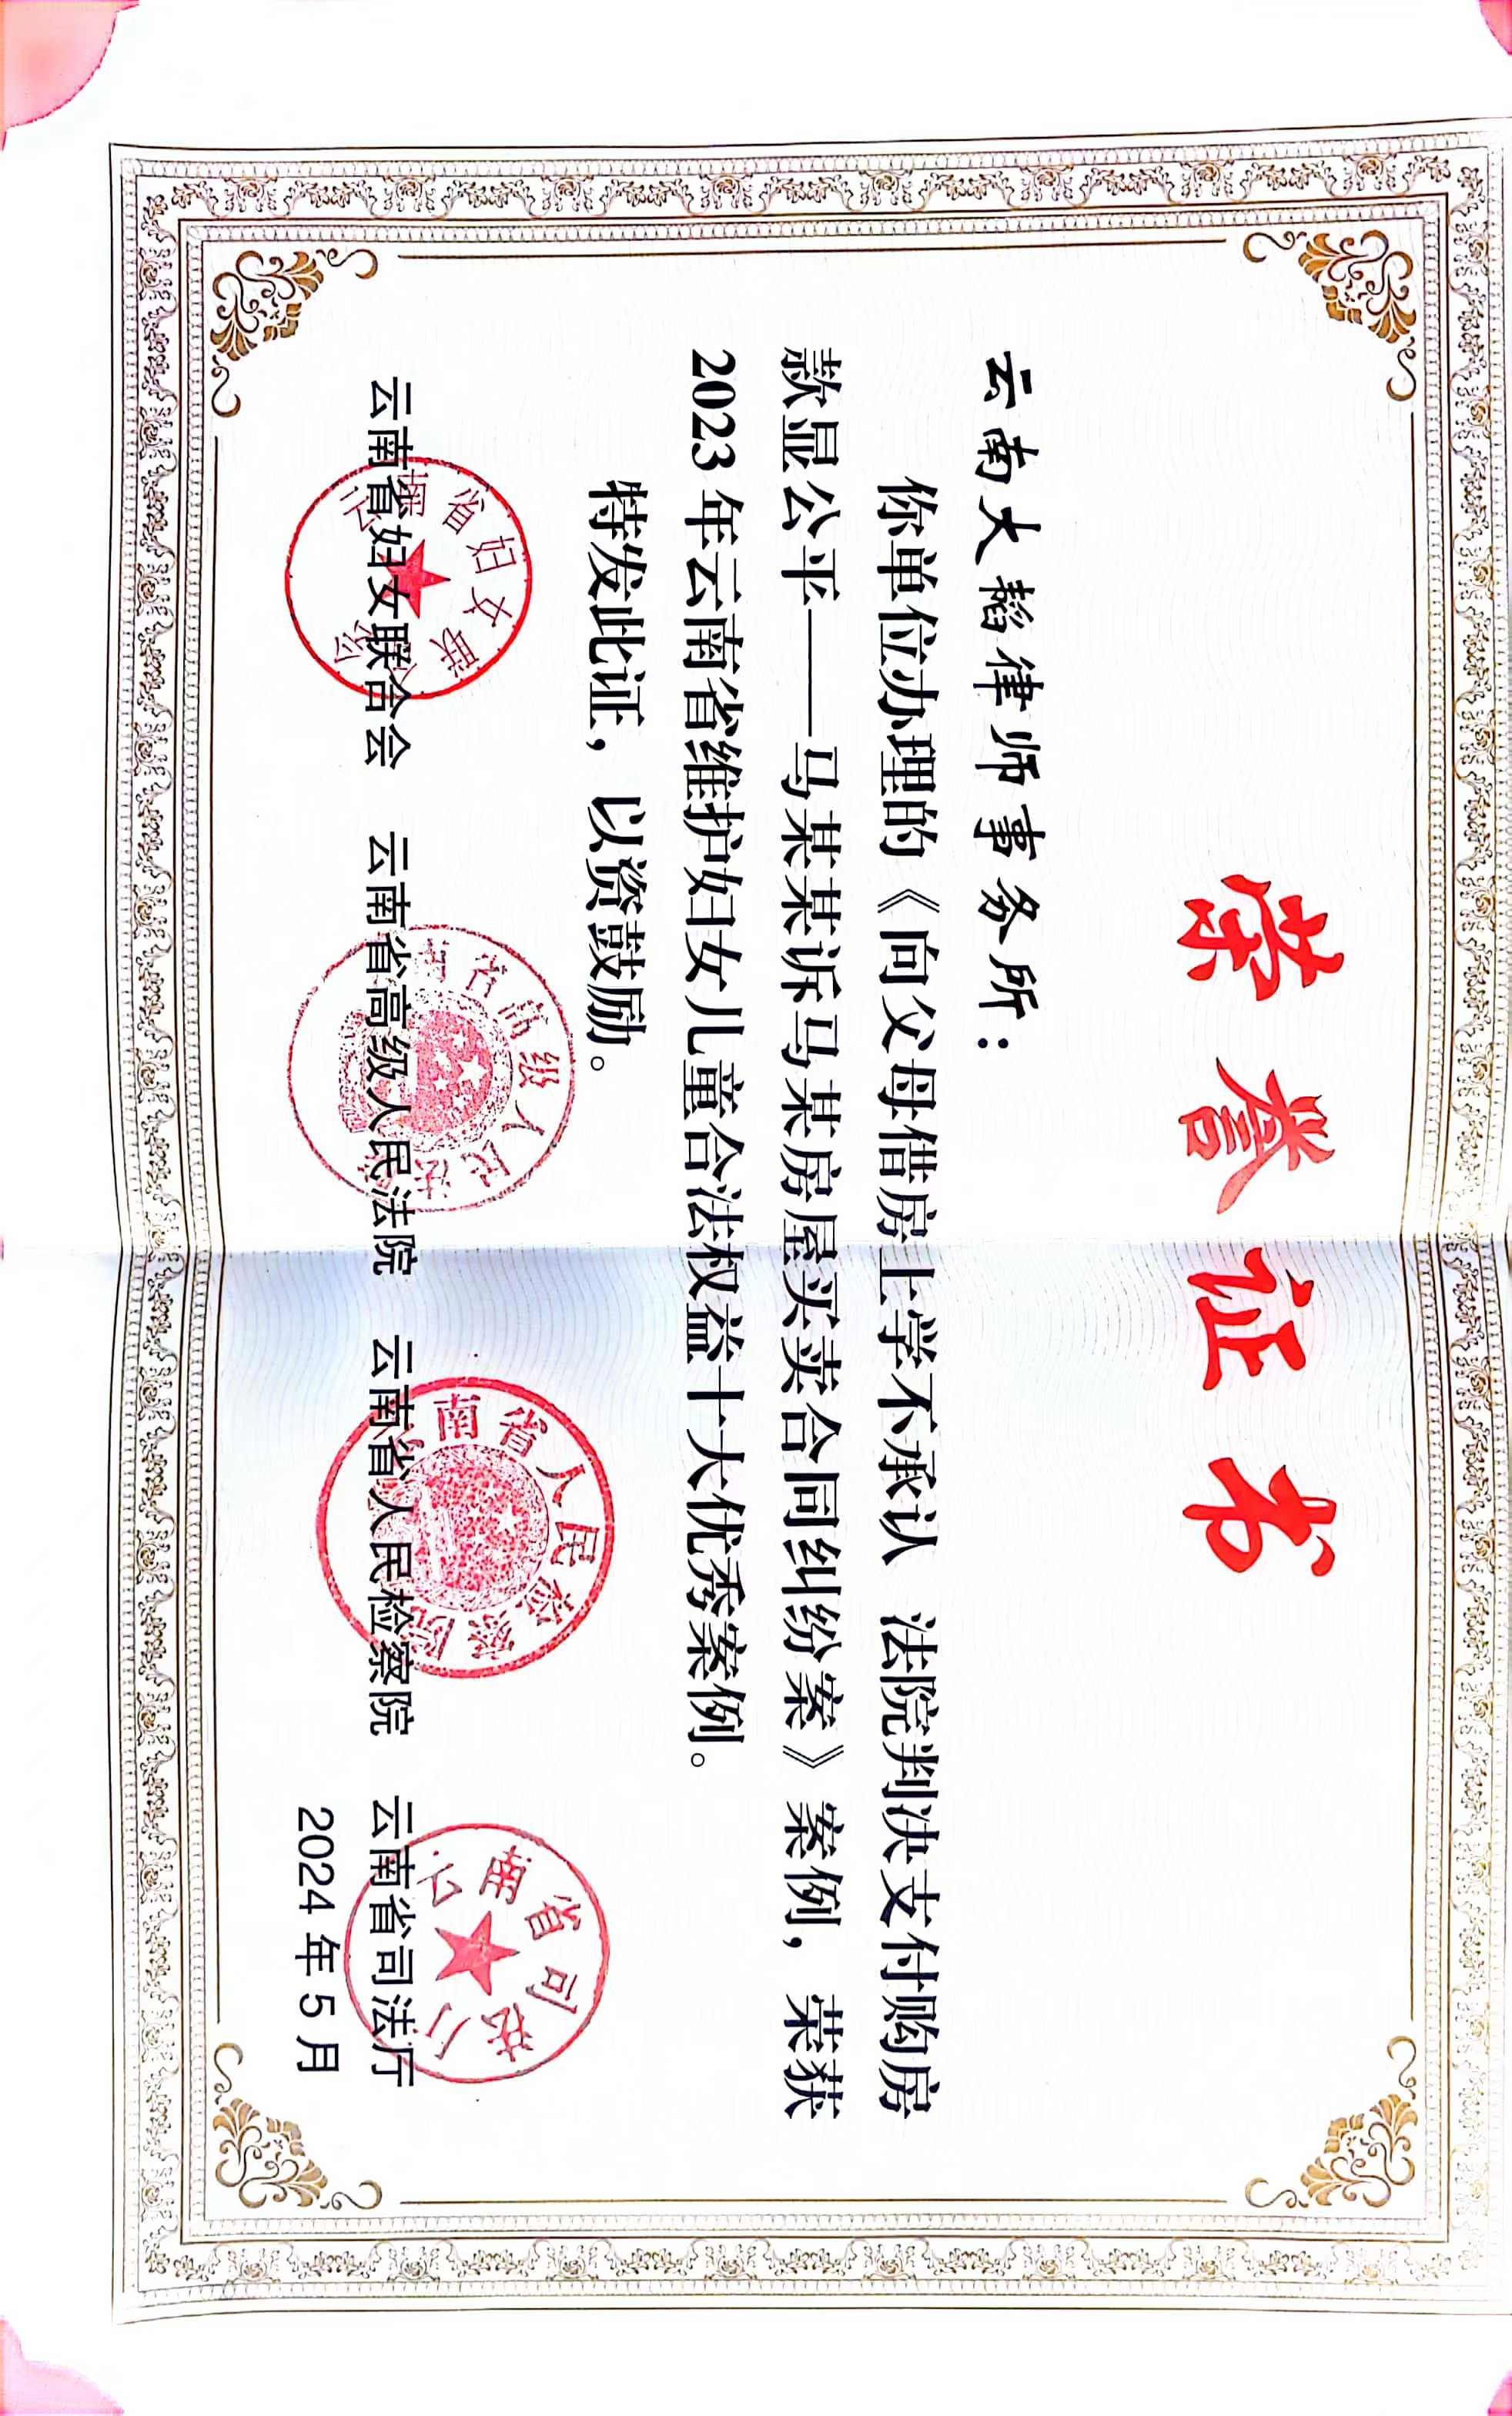 荣誉证书
云南大韬律师事务所：
你单位办理的《向父母借房上学不承认 法院判决支付购房
款显公平——马某某诉马某房屋买卖合同纠纷案》案例，荣获
2023年云南省维护妇女儿童合法权益十大优秀案例。
特发此证，以资鼓励。
云南省妇女联合会 云南省高级人民法院 云南省人民检察院 云南省司法厅
2024年5月
云南省妇女联合会
南省高级人民法
南省人民检察院
云南省司法厅